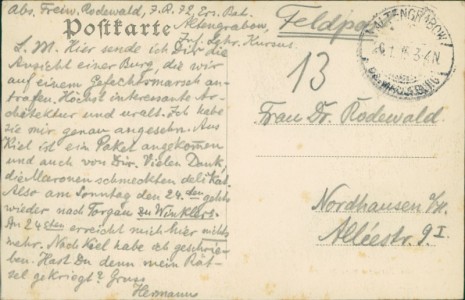 Abs. Freiw. Rodewald, J. R. 72, Ers. Bat.
Altengrabow,
Postkarte
Feldpost
L. M. Hier sende ich Dir die
Ansicht einer Burg, die wir
auf einem Gefechtsmarsch an-
trafen. Höchst interessante Ar-
chitektur und uralt. Ich habe
sie mir genau angesehn. Aus
Kiel ist ein Paket angekommen
und auch von Dir. Vielen Dank,
die Maronen schmeckten delikat.
Also am Sonntag den 24. den gehts
wieder nach Torgau zu Winklers.
Am 24sten erreicht mich hier nichts
mehr. Nach Kiel habe ich geschrie-
ben. Hast Du denn mein Rät-
sel gekriegt? Gruss
Hermann
ALTENGRABOW
13
Frau Dr. Rodewald.
Nordhausen a/H.
Alleestr. 9 I